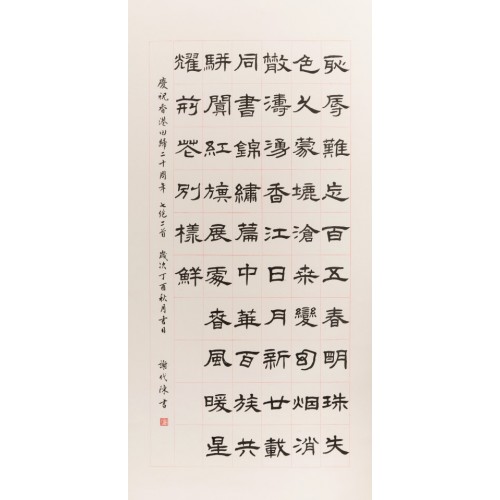 恥辱難忘百五春明珠失
色久蒙塵滄桑變幻烟消
散濤湧香江日月新廿載
同書錦繡篇中華百族共
駢闐紅旗展處春風暖星
耀荊花別樣鮮
慶祝香港回歸二十周年 七絕二首 歲次丁酉秋月書日 謝代書